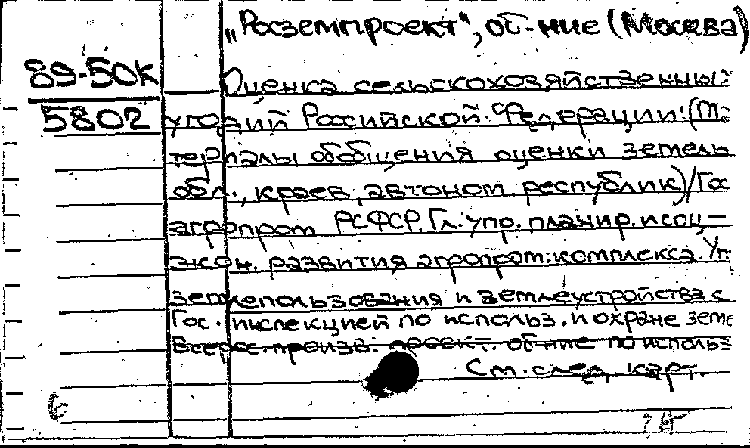 „Росземпроект“, об-ние (Москва)
89-50К
5802
Оценка сельскохозяйственных
угодий Российской Федерации: (Ма
териалы обобщения оценки земель
обл., краев, автоном республик)/Гос
агропром РСФСР, Гл. упр. планир. и соц-
экон. развития агропром. комплекса Уп
землепользования и землеустройства с
Гос. инспекцией по использ. и охране земе
Всерос. произв. проект. об-ние по использ
См. след. карт.